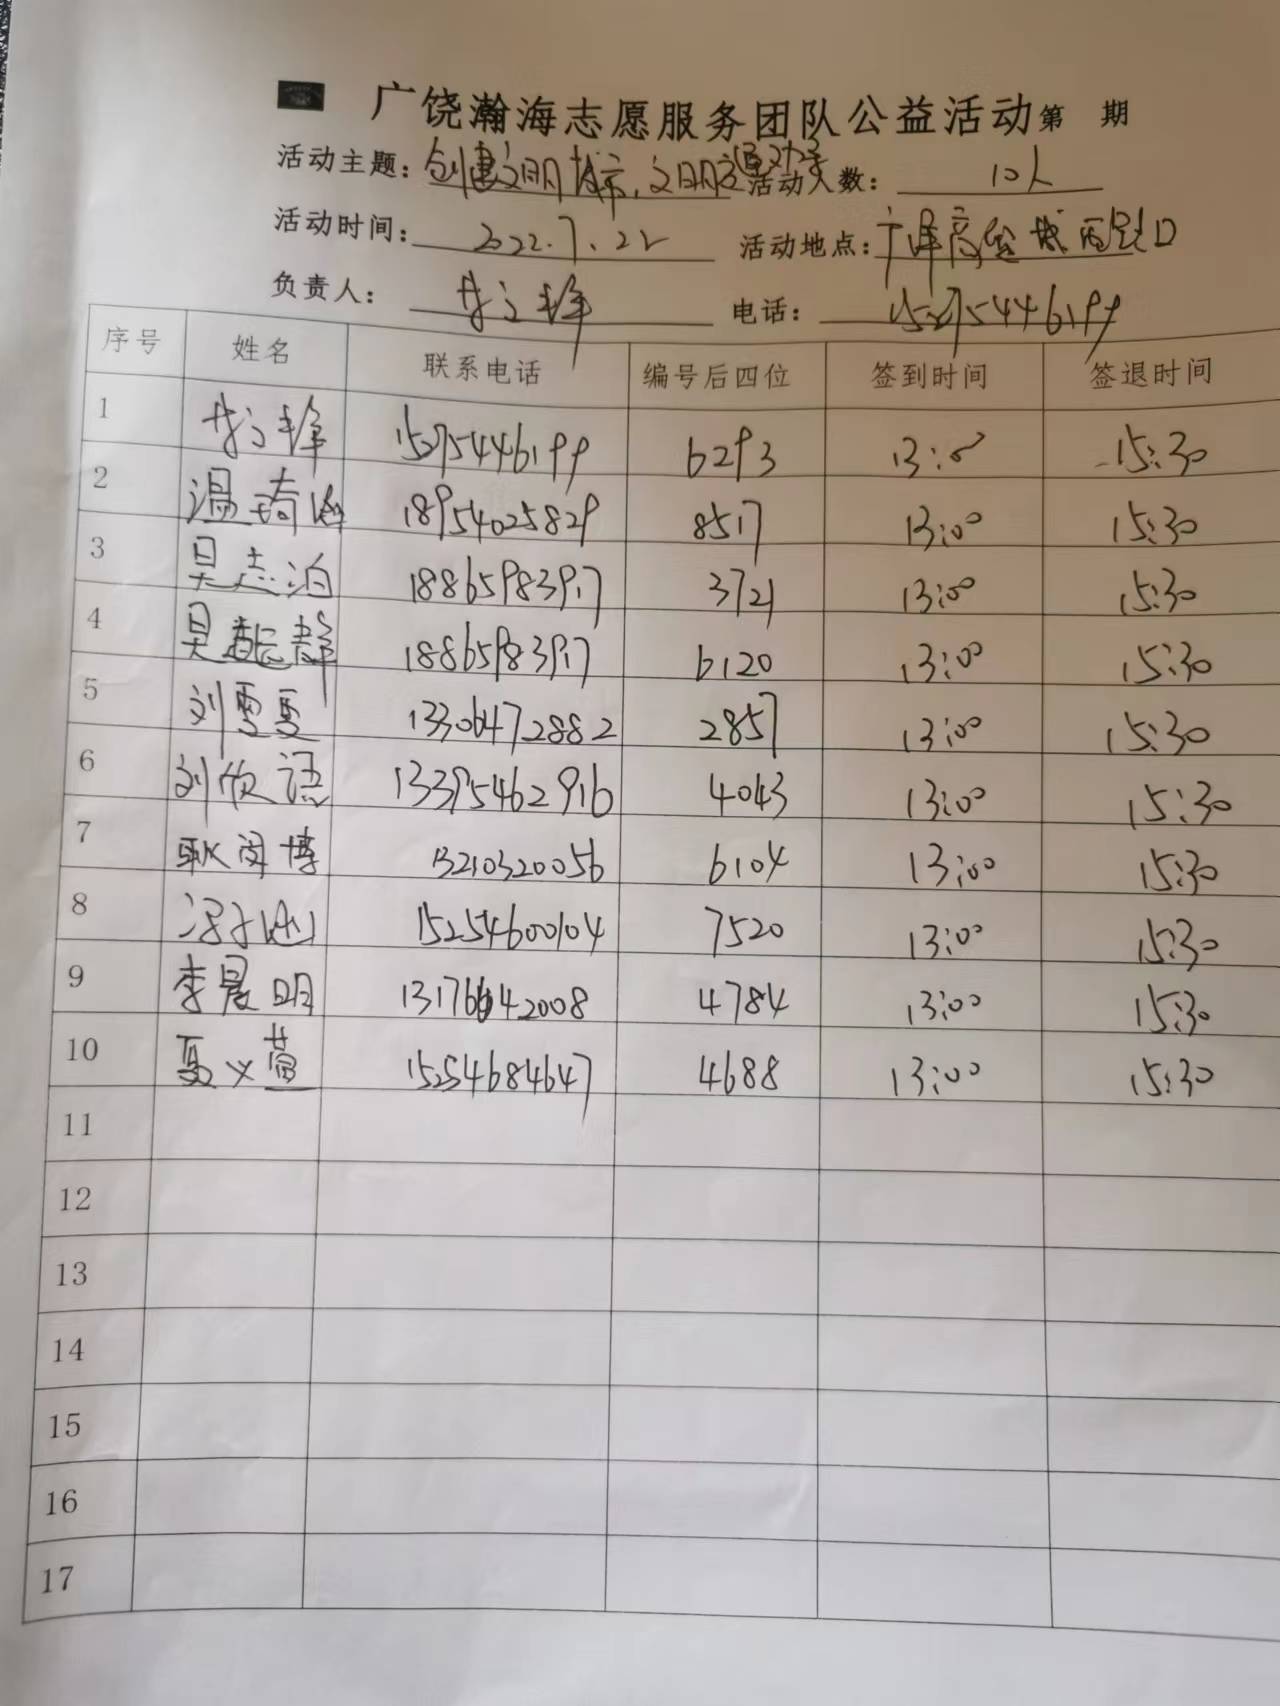 广饶瀚海志愿服务团队公益活动第 期
活动主题: 创建文明城市,文明交通劝导 活动人数: 10人
活动时间: 2022.7.22 活动地点: 西路口
负责人: 电话:
序号 姓名 联系电话 编号后四位 签到时间 签退时间
1 6293 13:00 15:30
2 温琦 18954025829 8517 13:00 15:30
3 吴志泊 18865983917 3721 13:00 15:30
4 吴 静 18865983917 6120 13:00 15:30
5 刘雪夏 13306472882 2857 13:00 15:30
6 刘欣语 13395462916 4043 13:00 15:30
7 耿闵博 13210320056 6104 13:00 15:30
8 15254600104 7520 13:00 15:30
9 李晨明 4784 13:00 15:30
10 夏义萱 15254684647 4688 13:00 15:30
11
12
13
14
15
16
17